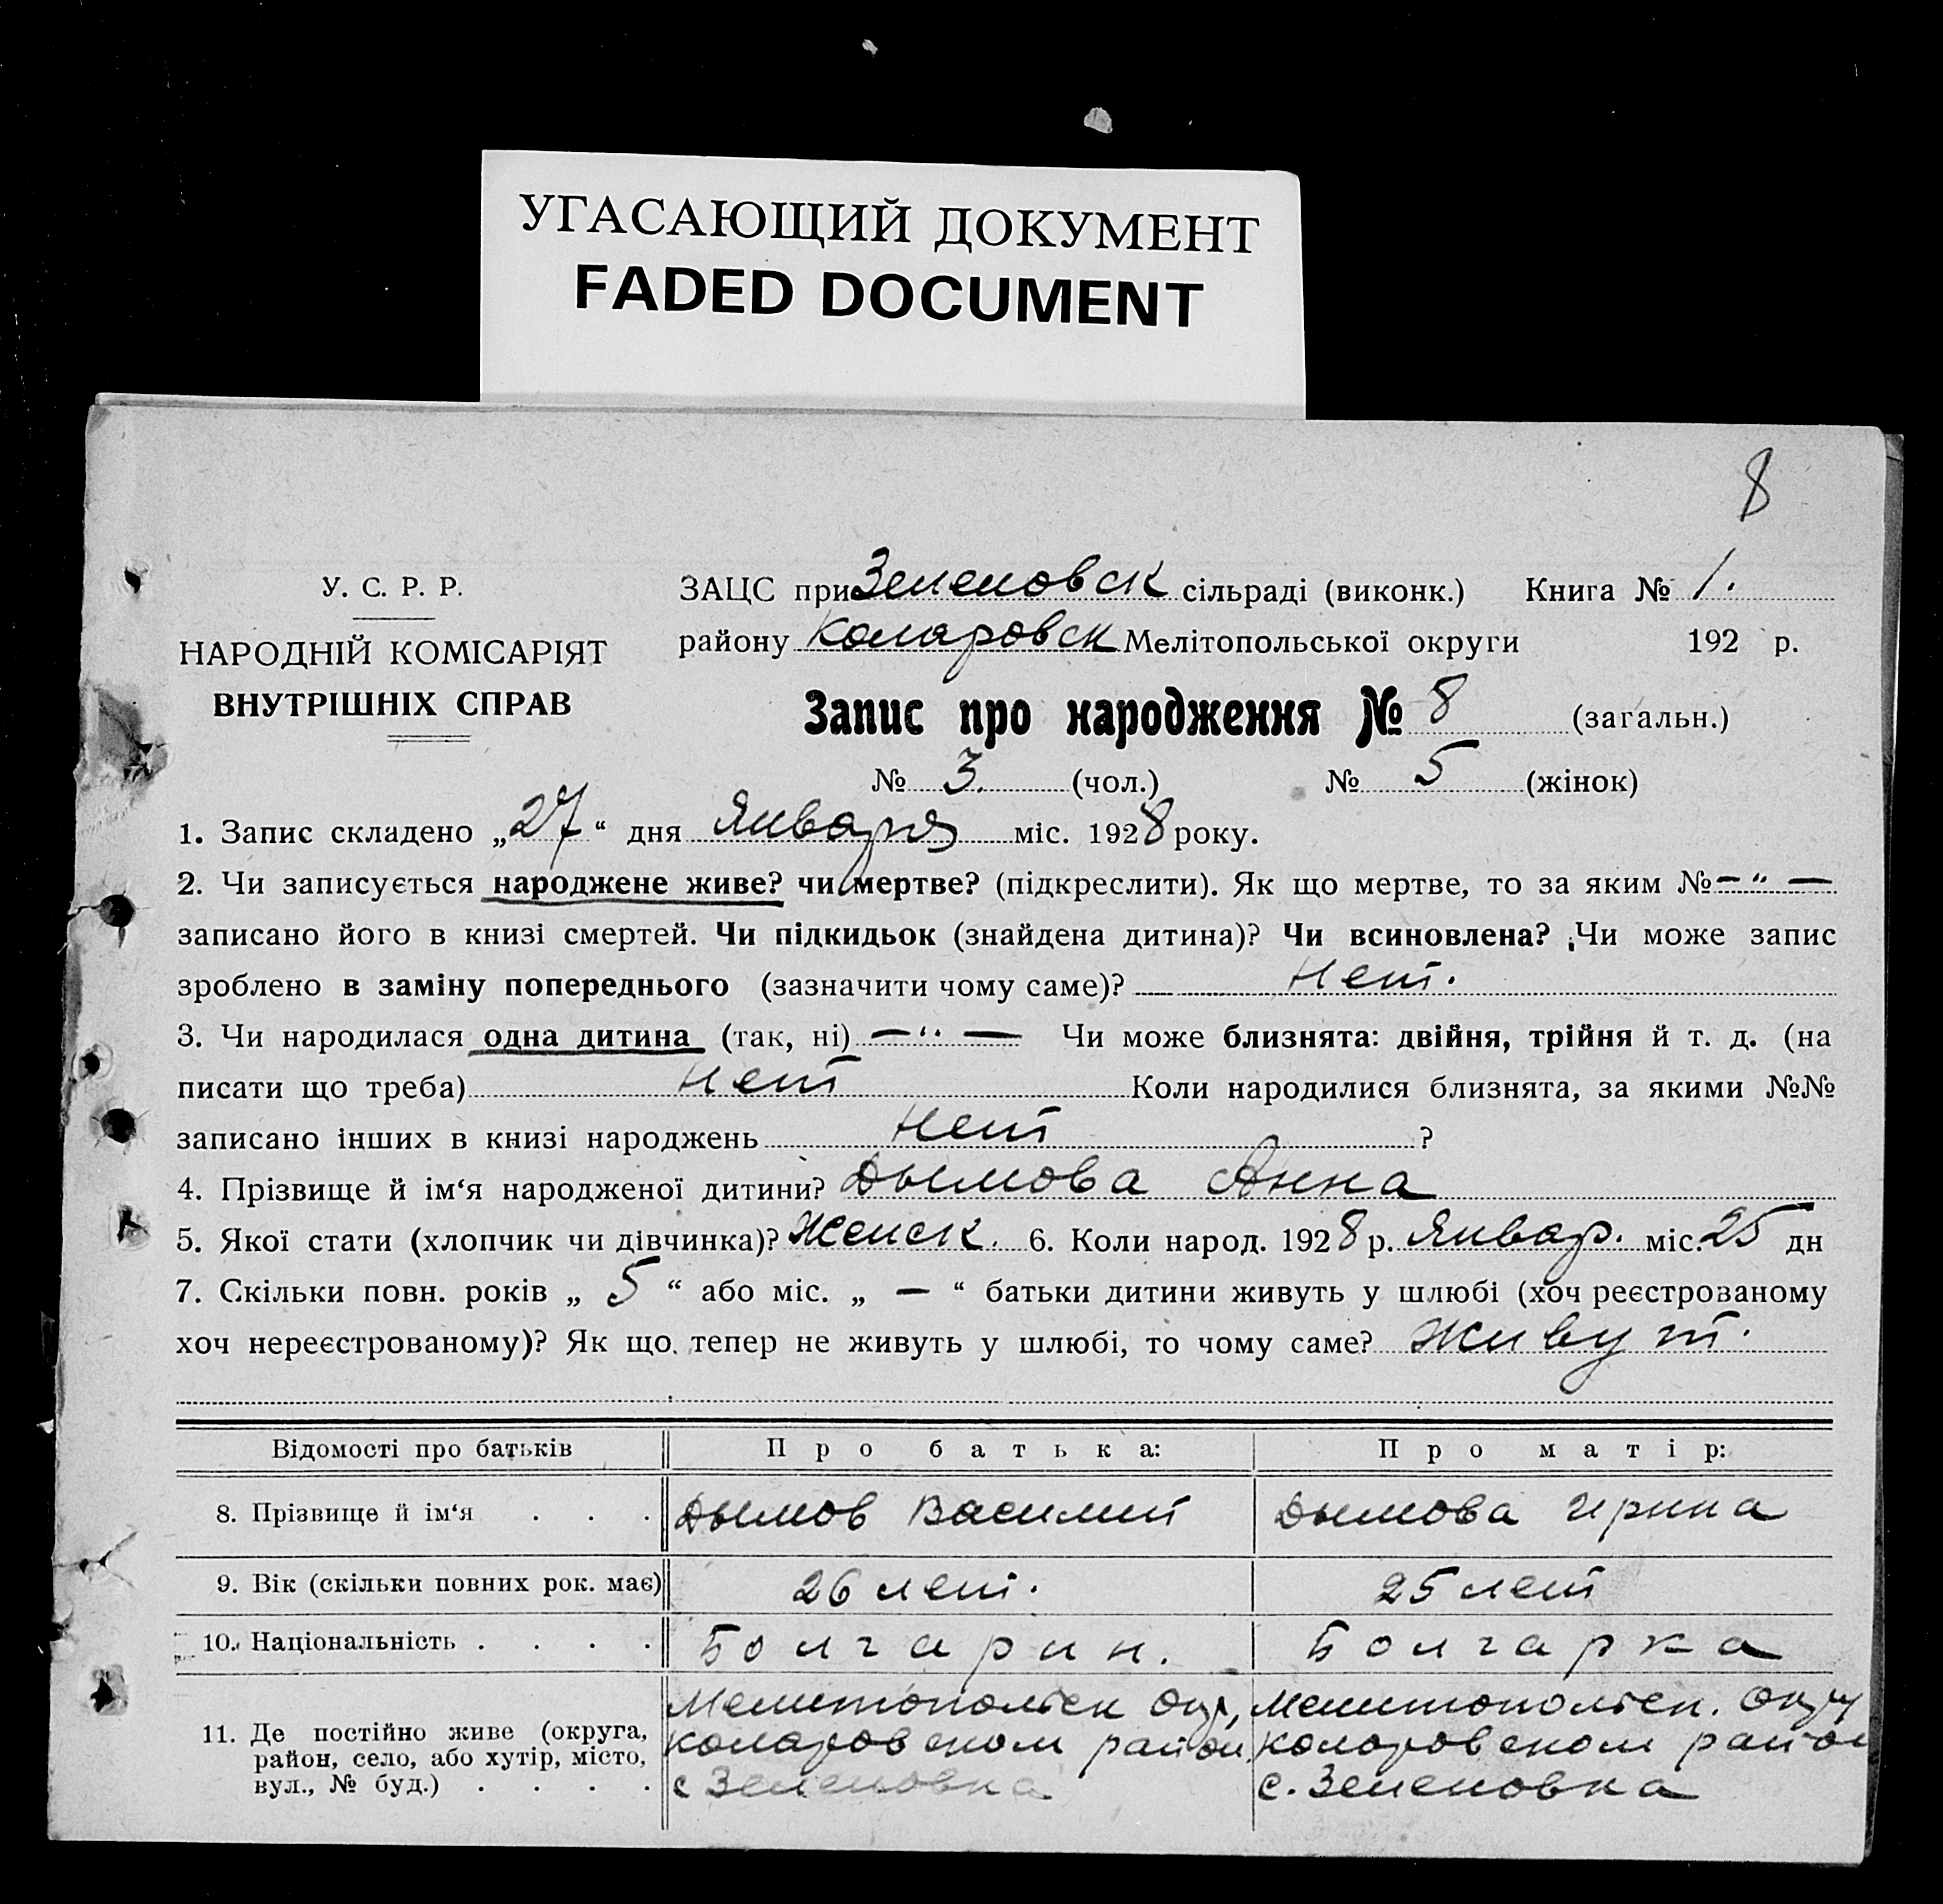 УГАСАЮЩИЙ ДОКУМЕНТ
FADED DOCUMENT
8
У. С. Р. Р.
НАРОДНІЙ КОМІСАРІЯТ
ВНУТРІШНІХ СПРАВ
ЗАЦС при Зеленовск сільраді (виконк.) Книга № 1.
району Коларовск Мелітопольської округи 192 р.
Запис про народження № 8 (загальн.)
№ 3. (чол.) № 5 (жінок)
1. Запис складено „27“ дня Января міс. 1928 року.
2. Чи записується народжене живе? чи мертве? (підкреслити). Як що мертве, то за яким № — " —
записано його в книзі смертей. Чи підкидьок (знайдена дитина)? Чи всиновлена? Чи може запис
зроблено в заміну попереднього (зазначити чому саме)? Нет.
3. Чи народилася одна дитина (так, ні) — " — Чи може близнята: двійня, трійня й т. д. (на
писати що треба) Нет Коли народилися близнята, за якими №№
записано інших в книзі народжень Нет ?
4. Прізвище й ім‘я народженої дитини? Дымова Анна
5. Якої стати (хлопчик чи дівчинка)? Женск. 6. Коли народ. 1928 р. Январ. міс. 25 дн
7. Скільки повн. років „ 5 “ або міс. „ — “ батьки дитини живуть у шлюбі (хоч реєстрованому
хоч нереєстрованому)? Як що тепер не живуть у шлюбі, то чому саме? Живут.
Відомості про батьків Про батька: Про матір:
8. Прізвище й ім‘я . . . Дымов Василий Дымова Ирина
9. Вік (скільки повних рок. має) 26 лет. 25 лет
10. Національність . . . . Болгарин. Болгарка
11. Де постійно живе (округа,
район, село, або хутір, місто,
вул., № буд.) . . . .
Мелитопольск Окр,
Коларовском район
с Зеленовка
Мелитопольск. Окру
Коларовском район
с. Зеленовка